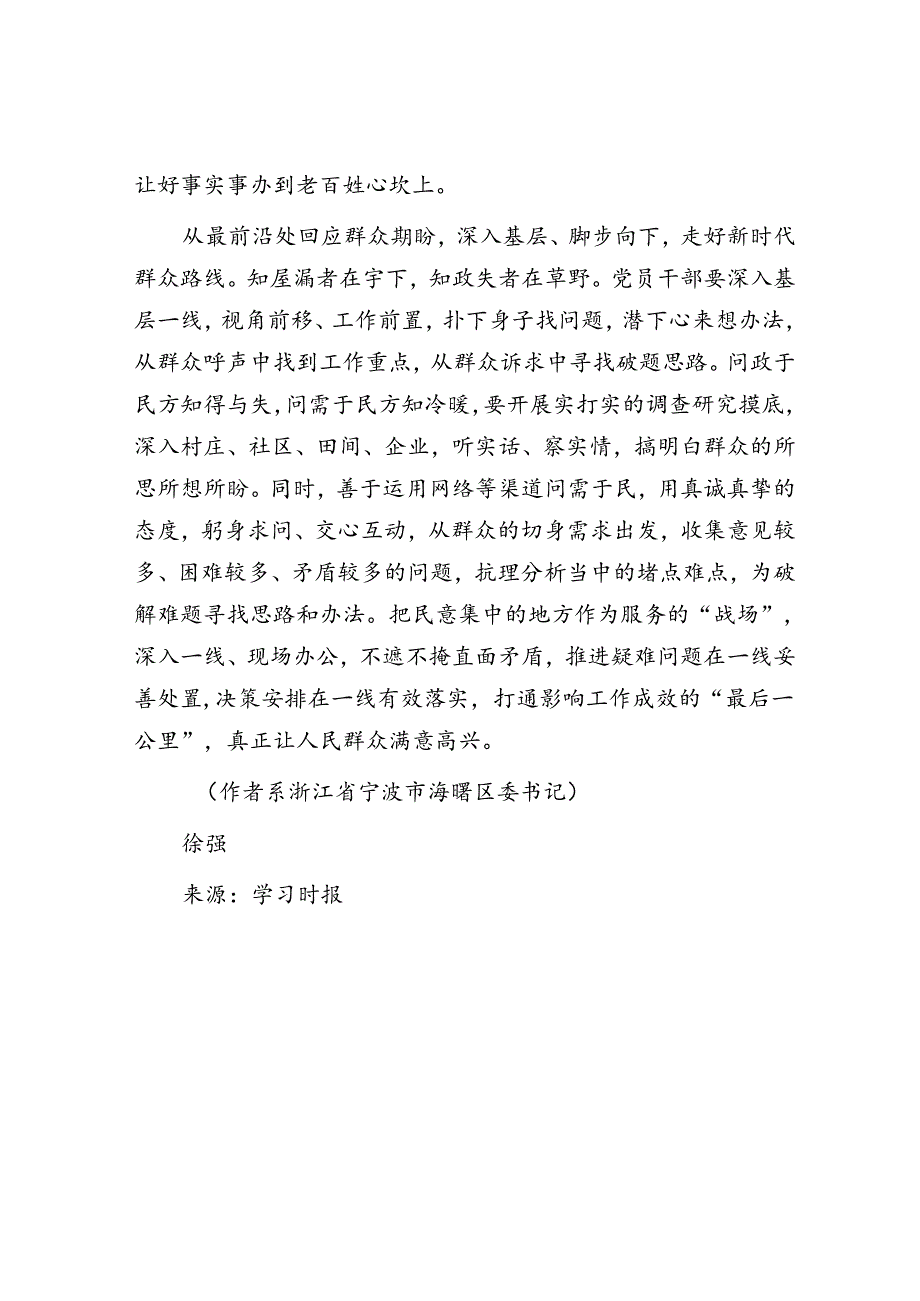 让好事实事办到老百姓心坎上。
从最前沿处回应群众期盼，深入基层、脚步向下，走好新时代
群众路线。知屋漏者在宇下，知政失者在草野。党员干部要深入基
层一线，视角前移、工作前置，扑下身子找问题，潜下心来想办法，
从群众呼声中找到工作重点，从群众诉求中寻找破题思路。问政于
民方知得与失，问需于民方知冷暖，要开展实打实的调查研究摸底，
深入村庄、社区、田间、企业，听实话、察实情，搞明白群众的所
思所想所盼。同时，善于运用网络等渠道问需于民，用真诚真挚的
态度，躬身求问、交心互动，从群众的切身需求出发，收集意见较
多、困难较多、矛盾较多的问题，抗理分析当中的堵点难点，为破
解难题寻找思路和办法。把民意集中的地方作为服务的“战场”，
深入一线、现场办公，不遮不掩直面矛盾，推进疑难问题在一线妥
善处置,决策安排在一线有效落实，打通影响工作成效的“最后一
公里”，真正让人民群众满意高兴。
（作者系浙江省宁波市海曙区委书记）
徐强
来源：学习时报